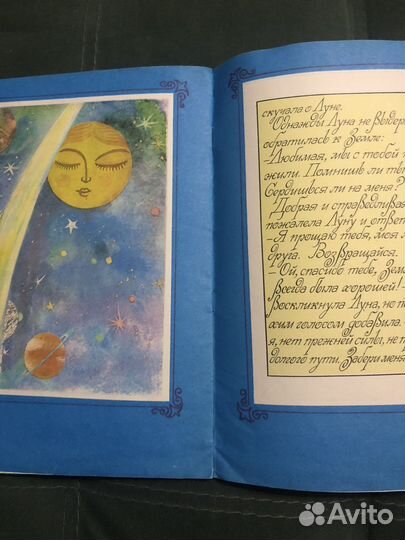 скучала о Луне.
Однажды Луна не выдер
обратилась к Земле:
–Любимая, мы с тобой т
жили. Помнишь ли ты
Сердишься ли на меня?
Добрая и справедливая
пожалела Луну и ответ
–Я прощаю тебя, моя л
друга. Возвращайся.
–Ой, спасибо тебе, Зем
всегда была хорошей!–
воскликнула Луна, но по
хим голосом добавила:
я, нет прежней силы, не пр
долгого пути. Забери меня
Avito